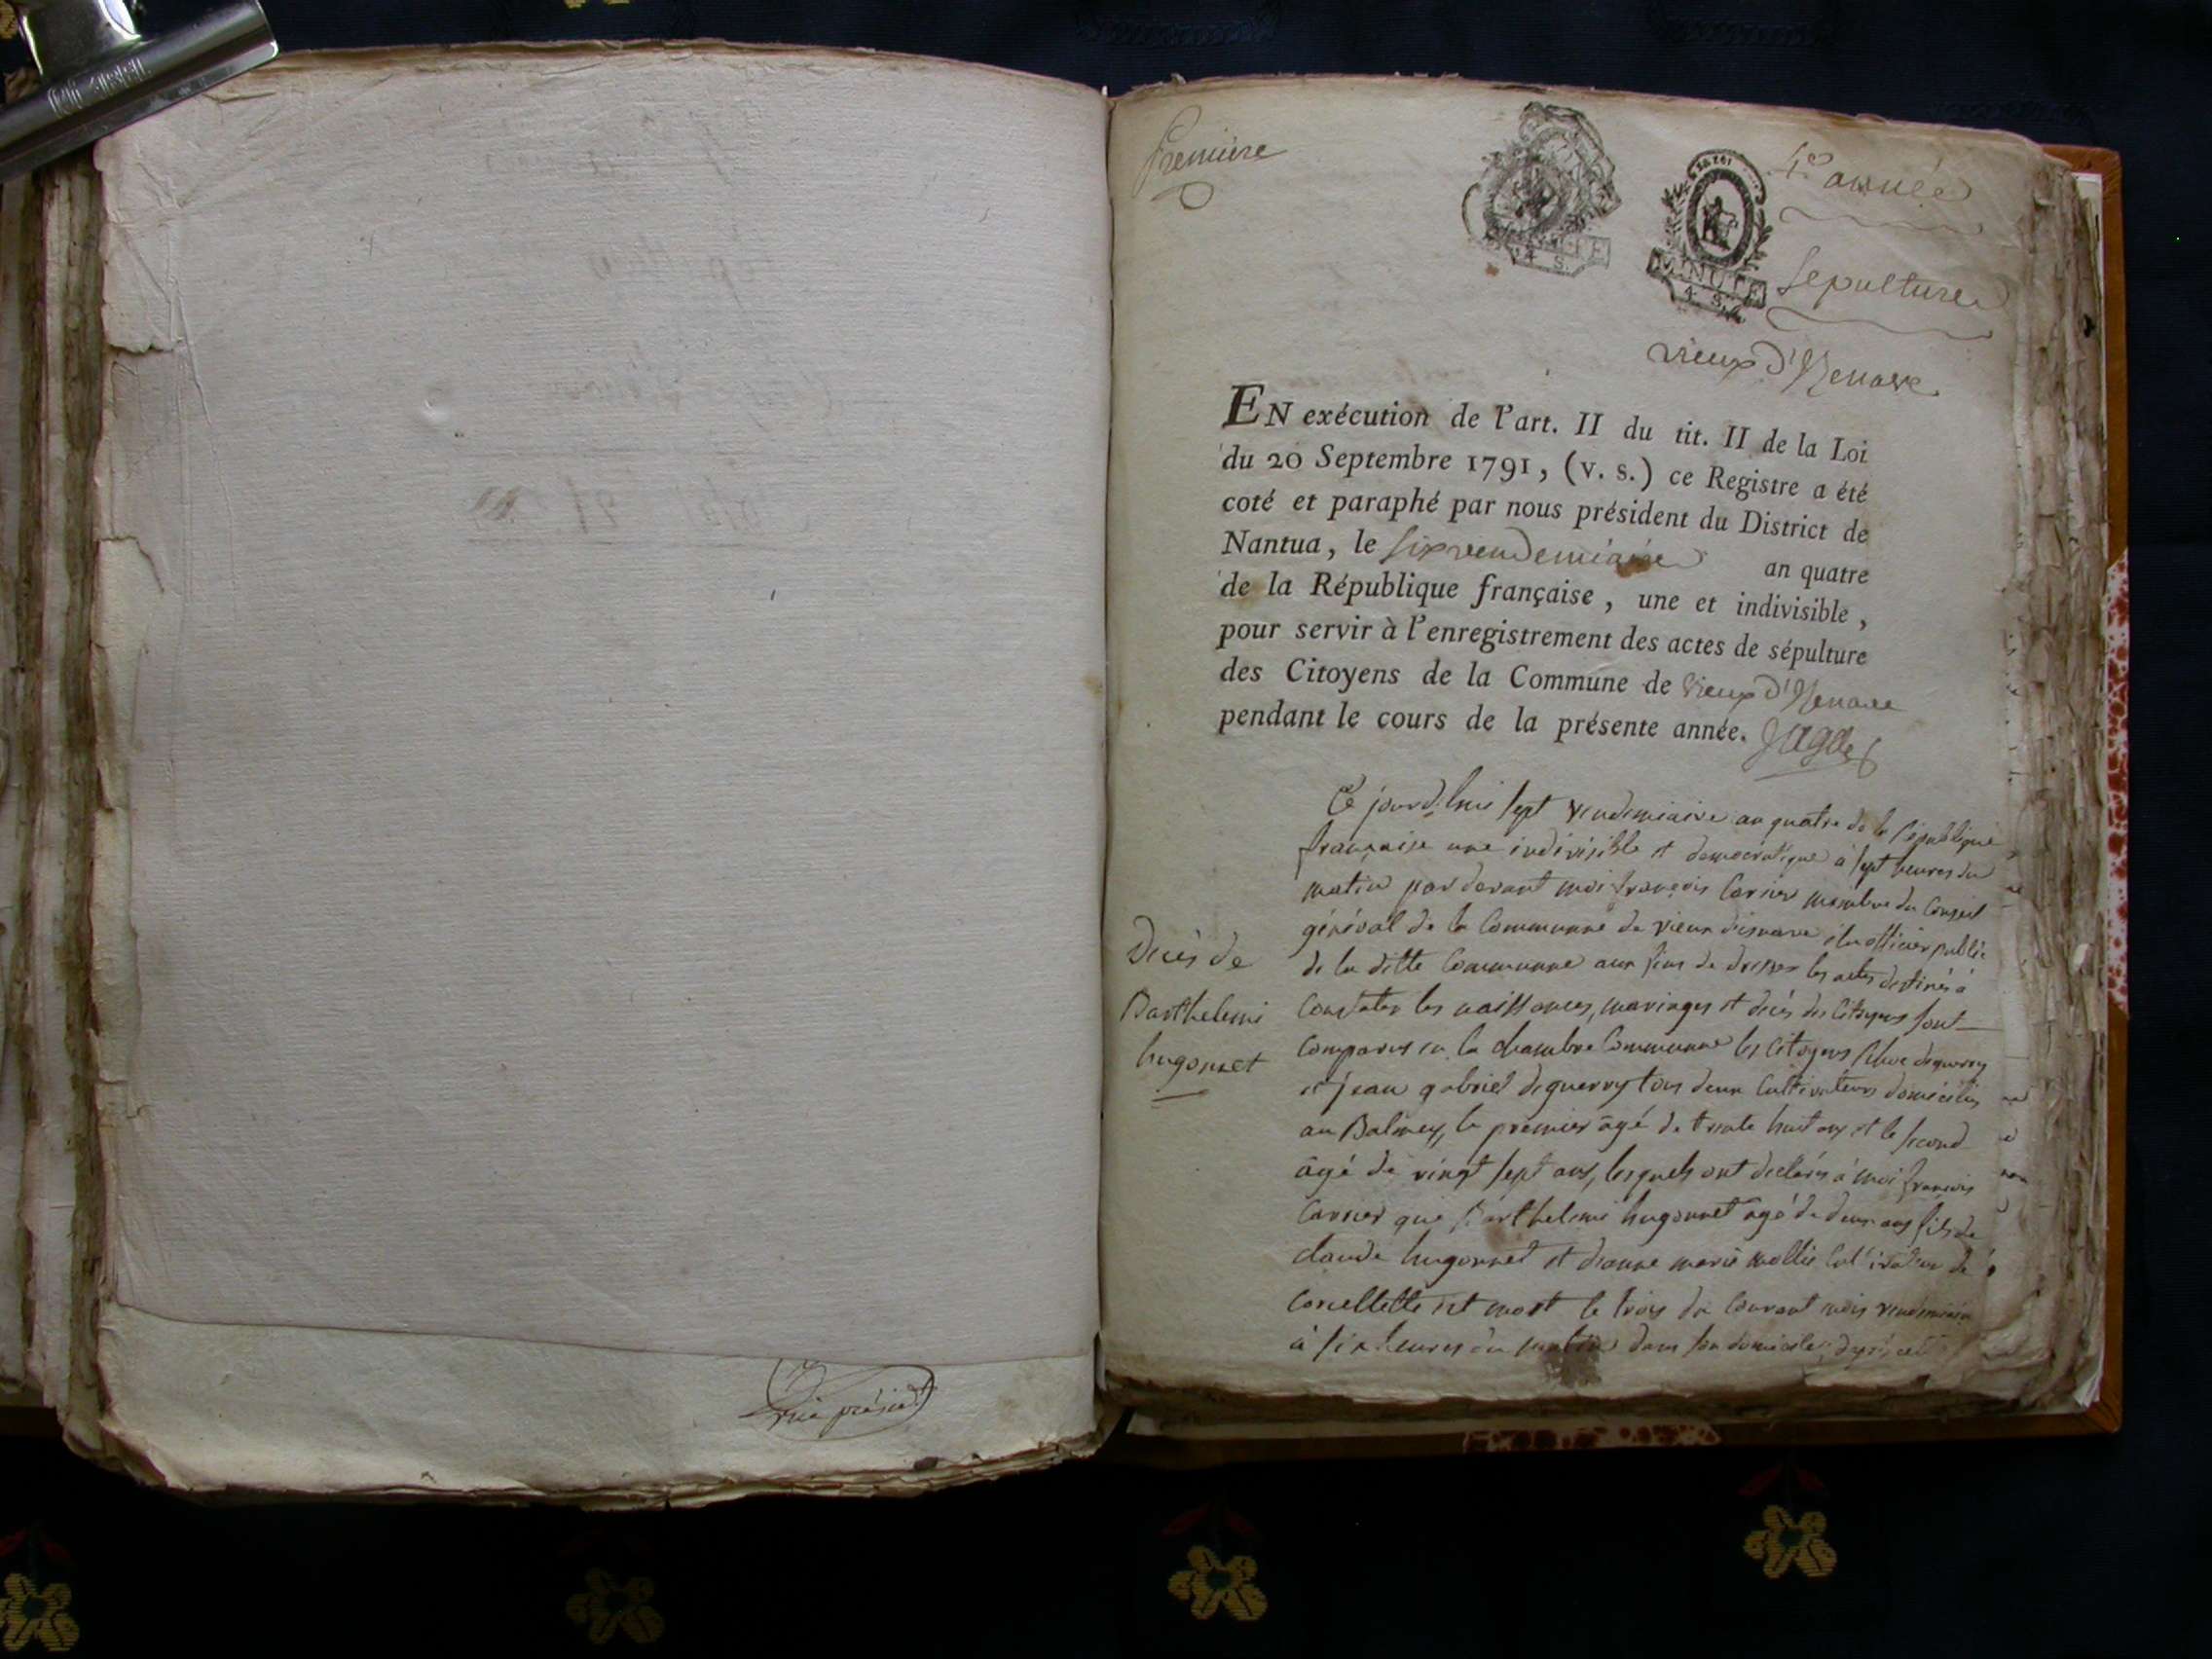 vice présidt
Premiere
4e année
Sepultures
MINUTE
4. S.
vieux d'Izenave
EN exécution de l'art. II du tit. II de la Loi
du 20 Septembre 1791, (v. s.) ce Registre a été
coté et paraphé par nous président du District de
Nantua, le six vendemiaire an quatre
de la République française, une et indivisible,
pour servir à l'enregistrement des actes de sépulture
des Citoyens de la Commune de vieux d'Izenave
pendant le cours de la présente année.
Decès de
Barthelemi
hugonnet
Ce jourd'hui sept vendemiaire an quatre de la République
française une indivisible et democratique à sept heures du
matin par devant moi françois Carrier membre du Conseil
général de la Commune de vieux disnave élu officier public
de la ditte Commune aux fins de dresser les actes destinés à
Constater les naissances, mariages et decès des Citoyens sont
Comparus en la chambre Commune les Citoyens deguerry
et jean gabriel deguerry tous deux Cultivateurs domiciliés
au Balmey, le premier agé de trente huit ans et le second
agé de vingt sept ans, lesquels ont declarés à moi françois
Carrier que Barthelemi hugonnet agé de deux ans fils de
claude hugonnet et marie Cultivateur de
est mort le trois du Courant mois vendemiaire
à six heures du matin dans son domicile,